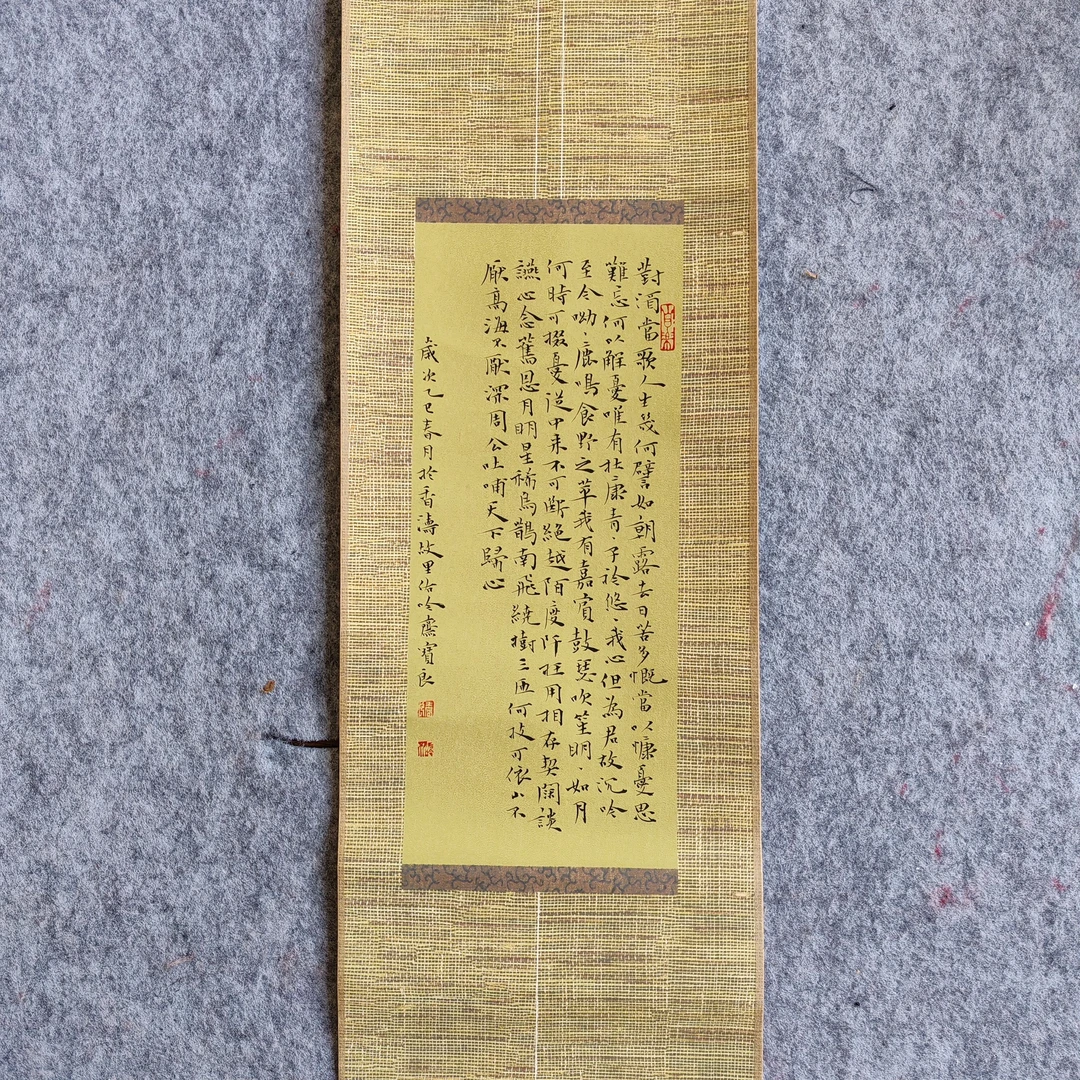 對酒當歌人生幾何譬如朝露去日苦多慨當以慷憂思
難忘何以解憂唯有杜康青、子衿悠、我心但為君故沉吟
至今呦、鹿鳴食野之草我有嘉賓鼓瑟吹笙明、如月
何時可掇憂從中来不可斷絕越陌度阡枉用相存契闊談
讌心念舊恩月明星稀烏鵲南飛繞樹三匝何枝可依山不
厭高海不厭深周公吐哺天下歸心
歲次乙巳春月於香濤故里吟齋寶良